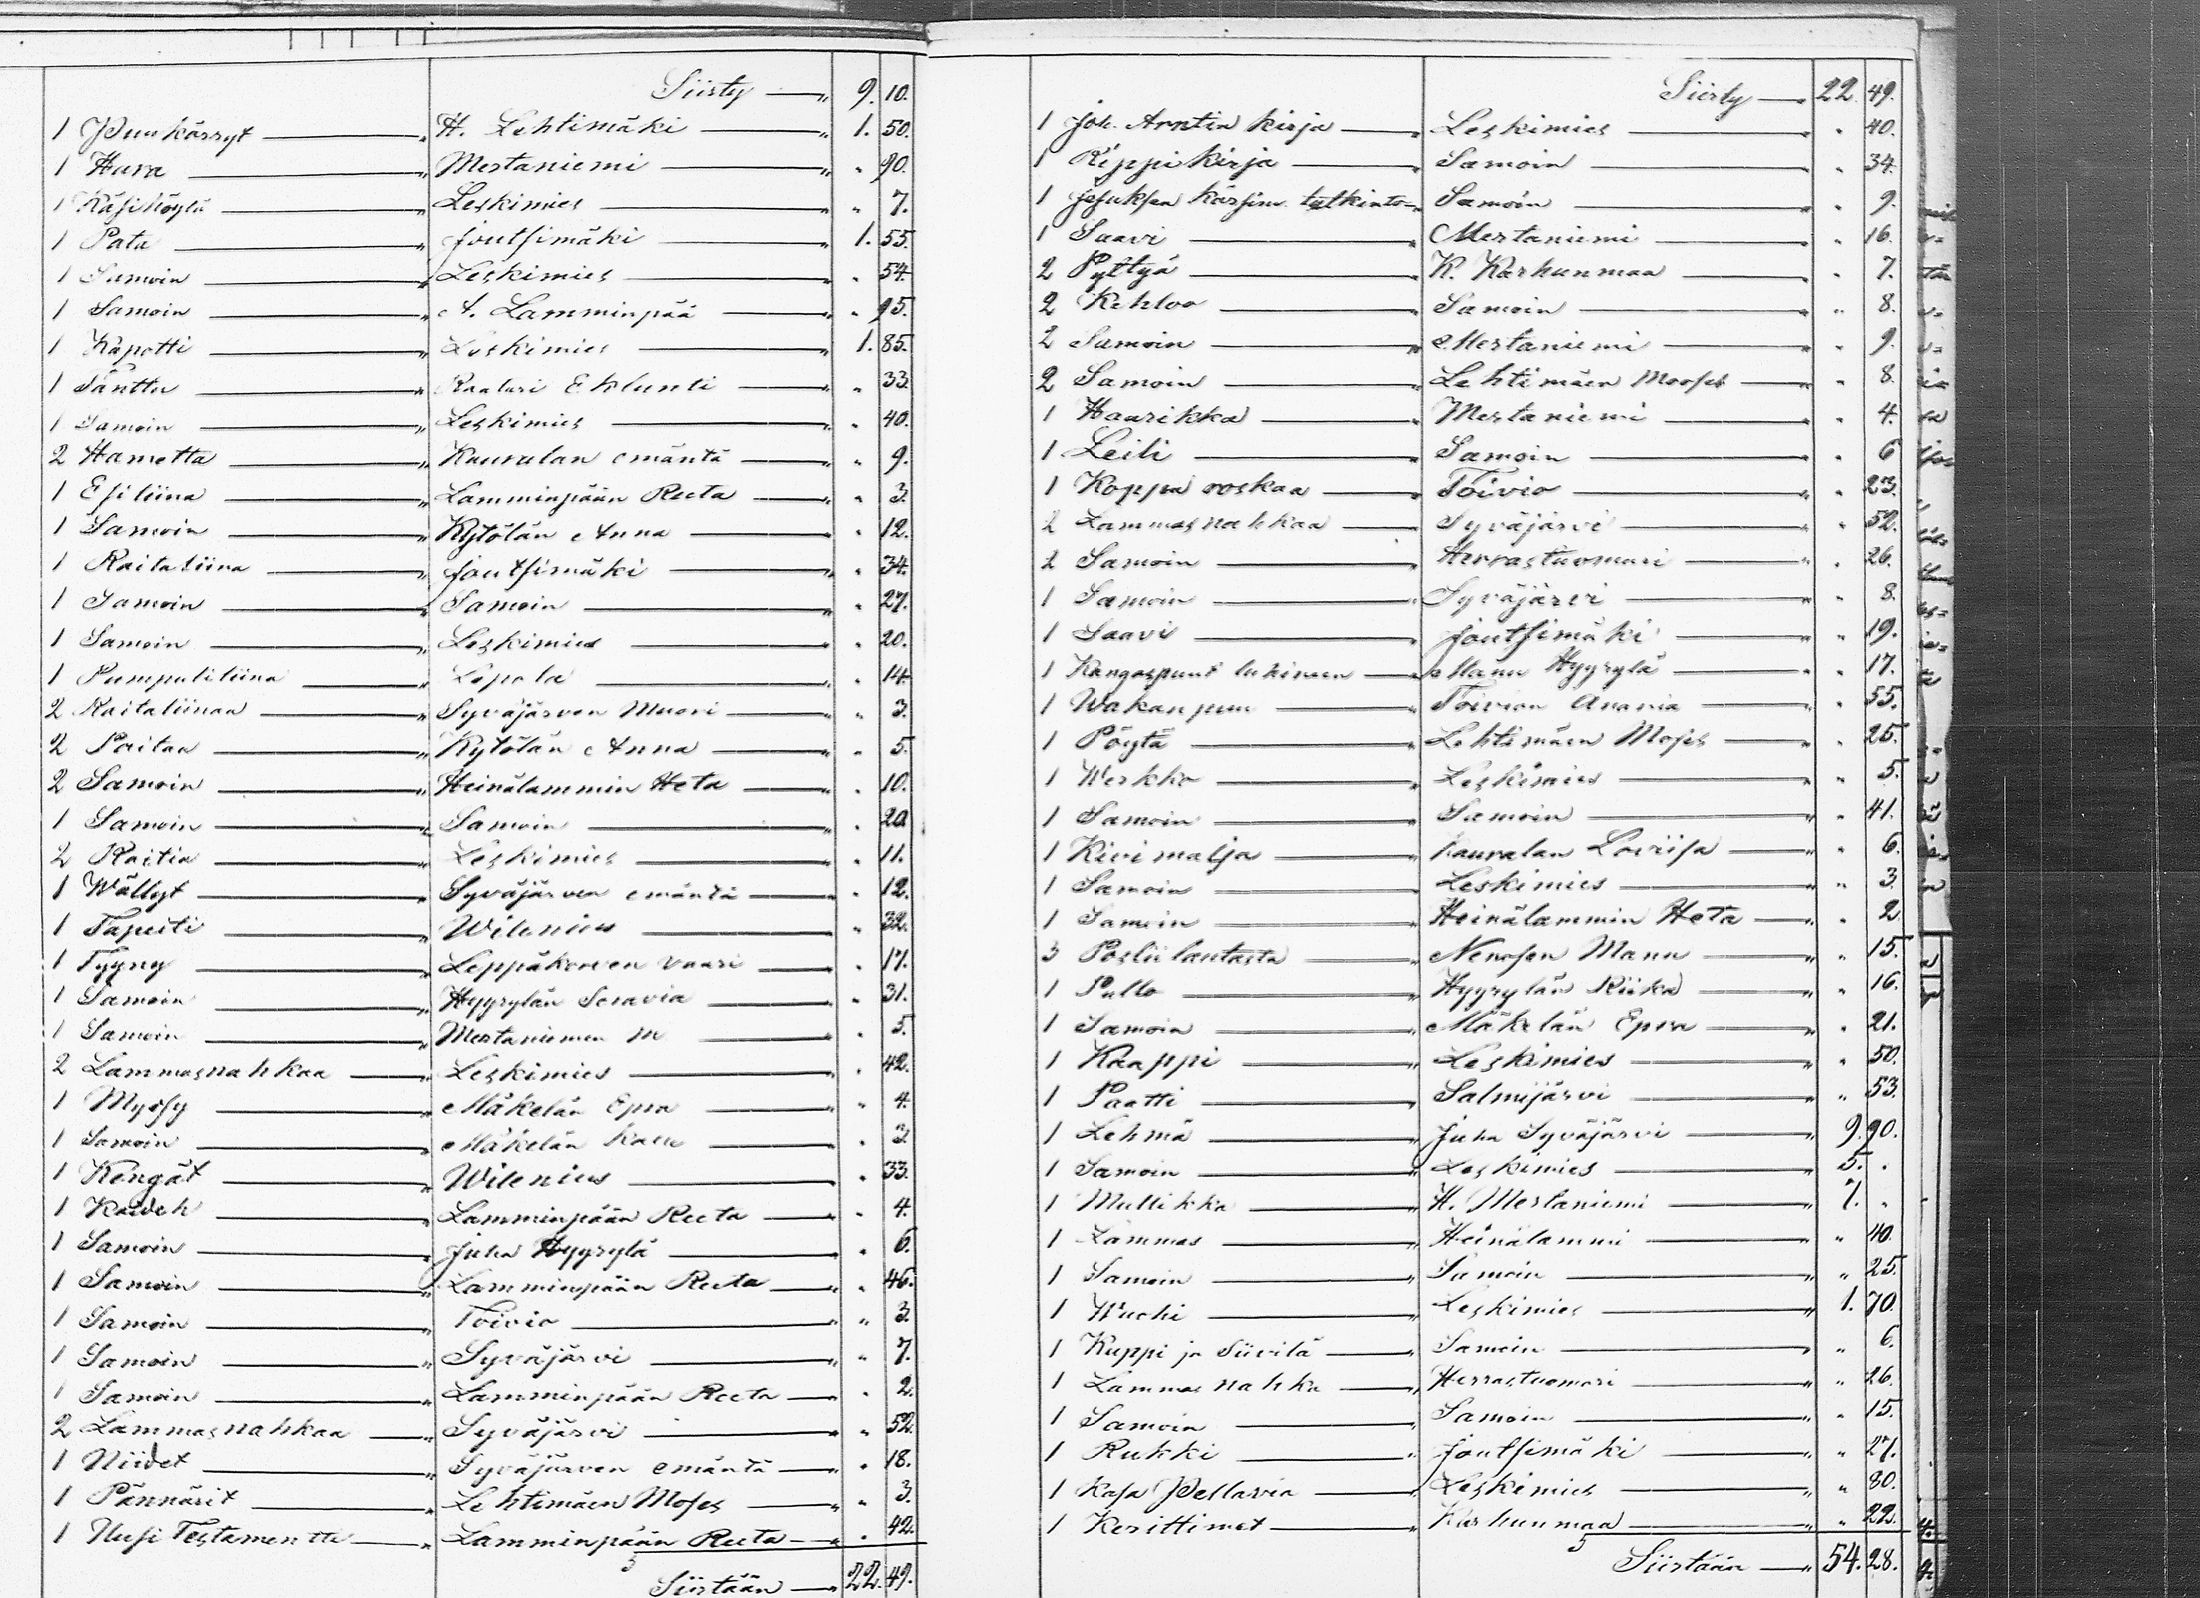 Siirty — 9. 10.
1 Puukärryt — H. Lehtimäki — 1. 50.
1 Hura — Mertaniemi — " 90.
1 Käsihöylä — Leskimies — " 7.
1 Pata — Joutsimäki — 1. 55.
1 Samoin — Leskimies — " 54.
1 Samoin — A. Lamminpää — " 95.
1 Kapotti — Leskimies — 1. 85.
1 Täntty — Raaturi Eklunti — " 33.
1 Samoin — Leskimies — " 40.
2 Hametta — Kauralan emäntä — " 9.
1 Esiliina — Lamminpään Reeta — " 3.
1 Samoin — Kytölän Anna — " 12.
1 Raitaliina — Joutsimäki — " 34.
1 Samoin — Samoin — " 27.
1 Samoin — Leskimies — " 20.
1 Pumpuliliina — Lopola — " 14.
2 Raitaliinaa — Syväjärven Muori — " 3.
2 Paitaa — Kytölän Anna — " 5.
2 Samoin — Heinälammin Heta — " 10.
1 Samoin — Samoin — " 20
2 Raitia — Leskimies — " 11.
1 Wällyt — Syväjärven emäntä — " 12.
1 Tapeiti — Wilenius — " 32.
1 Tyyny — Leppäkorven vaari — " 17.
1 Samoin — Hyyrylän Seravia — " 31.
1 Samoin — Mertaniemen m — " 5.
2 Lammasnahkaa — Leskimies — " 42.
1 Myssy — Mäkelän Epra — " 4.
1 Samoin — Mäkelän — " 3
1 Kengät — Wilenius — " 33.
1 Kaideh — Lamminpään Reeta — " 4.
1 Samoin — Juha Hyyrylä — " 6.
1 Samoin — Lamminpään Reeta — " 46.
1 Samoin — Toivio — " 3
1 Samoin — Syväjärvi — " 7.
1 Samoin — Lamminpään Reeta — " 2.
2 Lammasnahkaa — Syväjärvi — " 52.
1 Niidet — Syväjärven emäntä — " 18.
1 Pännärit — Lehtimäen Moses — " 3.
1 Uusi Testamentti — Lamminpään Reeta — " 42.
Siirtään — 22. 49.
Siirty — 22. 49.
1 Joh. Arntin kirja — Leskimies — " 40.
1 Rippikirja — Samoin — " 34.
1 Jesuksen kärsim. tutkinto — Samoin — " 9.
1 Saavi — Mertaniemi — " 16.
2 Pyttyä — K. Karhunmaa — " 7.
2 Kehloo — Samoin — " 8.
2 Samoin — Mertaniemi — " 9.
2 Samoin — Lehtimäen Mooses — " 8.
1 Haarikka — Mertaniemi — " 4.
1 Leili — Samoin — " 6
1 Koppa roskaa — Toivio — " 23.
2 Lammasnahkaa — Syväjärvi — " 52.
2 Samoin — Herrastuomari — " 26.
1 Samoin — Syväjärvi — " 8.
1 Saavi — Joutsimäki — " 19.
1 Kangaspuut lukineen — Manu Hyyrylä — " 17.
1 Wakanpuu — Toivion Anania — " 55.
1 Pöytä — Lehtimäen Moses — " 25.
1 Werkko — Leskimies — " 5.
1 Samoin — Samoin — " 41.
1 Kivimalja — Kauralan Loviisa — " 6.
1 Samoin — Leskimies — " 3.
1 Samoin — Heinälammin Heta — " 2
3 Posliilautasta — Nenosen Manu — " 15.
1 Pullo — Hyyrylän Riika — " 16.
1 Samoin — Mäkelän Epra — " 21.
1 Kaappi — Leskimies — " 50.
1 Paatti — Salmijärvi — " 53.
1 Lehmä — Juha Syväjärvi — 9. 90.
1 Samoin — Leskimies — 5. "
1 Mullikka — H. Mertaniemi — 7. "
1 Lammas — Heinälammi — " 40.
1 Samoin — Samoin — " 25.
1 Wuohi — Leskimies — 1. 70.
1 Kuppi ja Siivilä — Samoin — " 6.
1 Lammasnahka — Herrastuomari — " 26.
1 Samoin — Samoin — " 15.
1 Rukki — Joutsimäki — " 27.
1 Kasa Pellavia — Leskimies — " 80.
1 Kerittimet — Karhunmaa — " 22.
Siirtään — 54. 28.